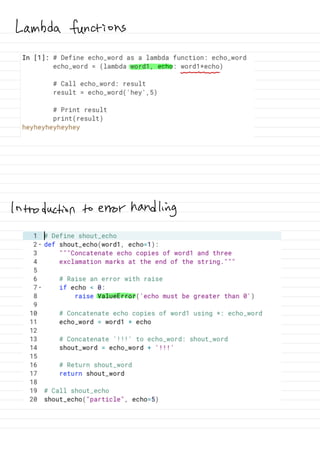 Lambda functions
In [1]: # Define echo_word as a lambda function: echo_word
echo_word = (lambda word1, echo: word1*echo)
# Call echo_word: result
result = echo_word('hey',5)
# Print result
print(result)
heyheyheyheyhey
Introduction to error handling
1 # Define shout_echo
2- def shout_echo(word1, echo=1):
3 """Concatenate echo copies of word1 and three
4 exclamation marks at the end of the string."""
5
6 # Raise an error with raise
7- if echo < 0:
8 raise ValueError('echo must be greater than 0')
9
10 # Concatenate echo copies of word1 using *: echo_word
11 echo_word = word1 * echo
12
13 # Concatenate '!!!' to echo_word: shout_word
14 shout_word = echo_word + '!!!'
15
16 # Return shout_word
17 return shout_word
18
19 # Call shout_echo
20 shout_echo("particle", echo=5)